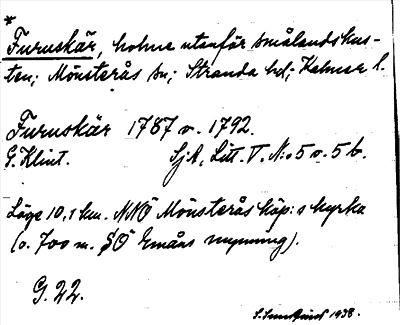 *
Furuskär, holme utanför smålandskus-
ten; Mönsterås sn; Stranda hd; Kalmar l.
Furuskär 1787 o. 1792.
G. Klint. SjK, Litt. V. N:o 5 o. 5 b.
Läge 10,1 km. NNÖ Mönsterås köp:s kyrka
(o. 700 m. SÖ Emåns mynning).
G. 22.
1938.